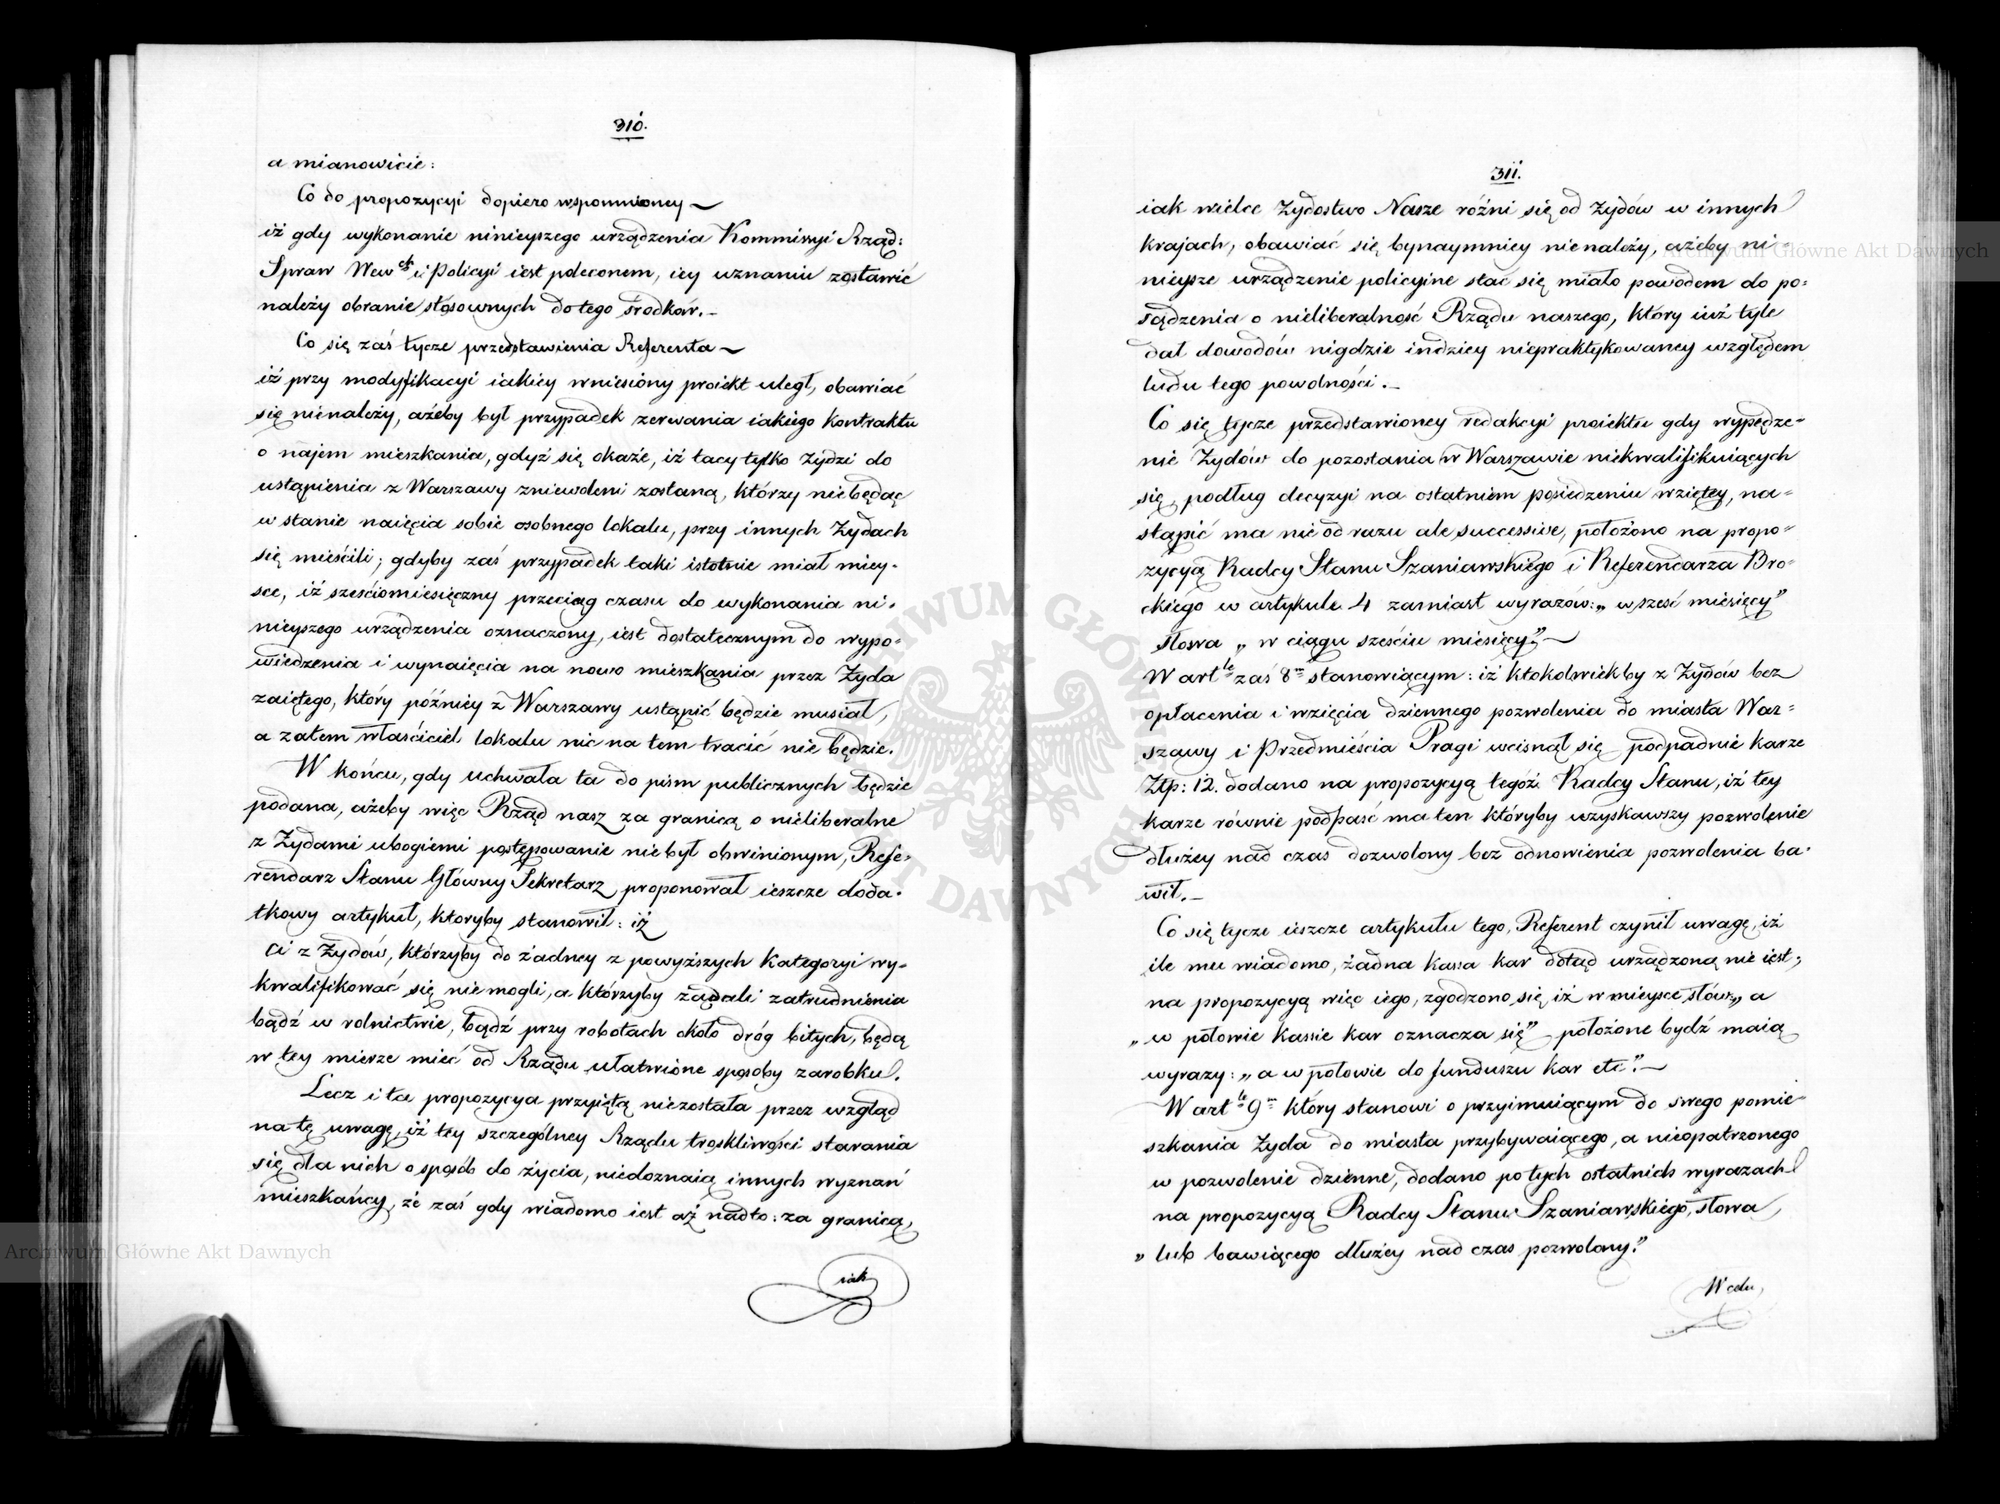 310.
a mianowicie:
Co do propozycyi dopiero wspomnioney —
iż gdy wykonanie ninieyszego urządzenia Kommissyi Rząd:
Spraw Wew ch i Policyi iest poleconem, iey uznaniu zostawić
należy obranie stósownych do tego środków. —
Co się zaś tycze przedstawienia Referenta —
iż przy modyfikacyi iakiey wniesiony proiekt uległ, obawiać
się nienależy, ażeby był przypadek zerwania iakiego kontraktu
o najem mieszkania, gdyż się okaże, iż tacy tylko Żydzi do
ustąpienia z Warszawy zniewoleni zostaną, którzy nie będąc
w stanie naięcia sobie osobnego lokalu, przy innych Żydach
się mieścili; gdyby zaś przypadek taki istotnie miał miey-
sce, iż sześciomiesięczny przeciąg czasu do wykonania ni-
nieyszego urządzenia oznaczony, iest dostatecznym do wypo-
wiedzenia i wynaięcia na nowo mieszkania przez Żyda
zaiętego, który późniey z Warszawy ustąpić będzie musiał,
a zatem właściciel lokalu nic na tem tracić nie będzie.
W końcu, gdy uchwała ta do pism publicznych będzie
podana, ażeby więc Rząd nasz za granicą o nieliberalne
z Żydami ubogiemi postępowanie nie był obwinionym, Refe-
rendarz Stanu Główny Sekretarz proponował ieszcze doda-
tkowy artykuł, któryby stanowił: iż
ci z Żydów, którzyby do żadney z powyższych kategoryi wy-
kwalifikować się nie mogli, a którzyby żądali zatrudnienia
bądź w rolnictwie, bądź przy robotach około dróg bitych, będą
w tey mierze mieć od Rządu ułatwione sposoby zarobku.
Lecz i ta propozycya przyiętą niezostała przez wzgląd
na tę uwagę, iż tey szczególney Rządu troskliwości starania
się dla nich o sposób do życia, niedoznaią innych wyznań
mieszkańcy, że zaś gdy wiadomo iest aż nadto: za granicą,
iak
311.
iak wielce Żydostwo Nasze różni się od Żydów w innych
krajach, obawiać się bynaymniey nienależy, ażeby ni-
nieysze urządzenie policyjne stać się miało powodem do po-
sądzenia o nieliberalność Rządu naszego, który iuż tyle
dał dowodów nigdzie indziey niepraktykowaney względem
ludu tego powolności. —
Co się tycze przedstawioney redakcyi proiektu gdy wypędze-
nie Żydów do pozostania w Warszawie niekwalifikuiących
się, podług decyzyi na ostatniem posiedzeniu wziętey, na-
stąpić ma nie od razu ale successive, położono na propo-
zycyą Radcy Stanu Szaniawskiego i Referendarza Bro-
ckiego w artykule 4 zamiast wyrazów: „w sześć miesięcy”
słowa „w ciągu sześciu miesięcy” —
W art le zaś 8 m stanowiącym: iż ktokolwiekby z Żydów bez
opłacenia i wzięcia dziennego pozwolenia do miasta War-
szawy i Przedmieścia Pragi wcisnął się podpadnie karze
Złp: 12. dodano na propozycyą tegóż Radcy Stanu, iż tey
karze równie podpaść ma ten któryby uzyskawszy pozwolenie
dłużey nad czas dozwolony bez odnowienia pozwolenia ba-
wił. —
Co się tycze ieszcze artykułu tego, Referent czynił uwagę, iż
ile mu wiadomo, żadna kassa kar dotąd urządzoną nie iest;
na propozycyą więc iego, zgodzono się, iż w mieysce słów „a
„w połowie kassie kar oznacza się” położone bydź maią
wyrazy: „a w połowie do funduszu kar etc.” —
W art le 9 m który stanowi o przyimuiącym do swego pomie-
szkania Żyda do miasta przybywaiącego, a nieopatrzonego
w pozwolenie dzienne, dodano po tych ostatnich wyrazach
na propozycyą Radcy Stanu Szaniawskiego, słowa,
„lub bawiącego dłużey nad czas pozwolony.”
W celu,
ARCHIWUM GŁÓWNE AKT DAWNYCH
Archiwum Główne Akt Dawnych
Archiwum Główne Akt Dawnych